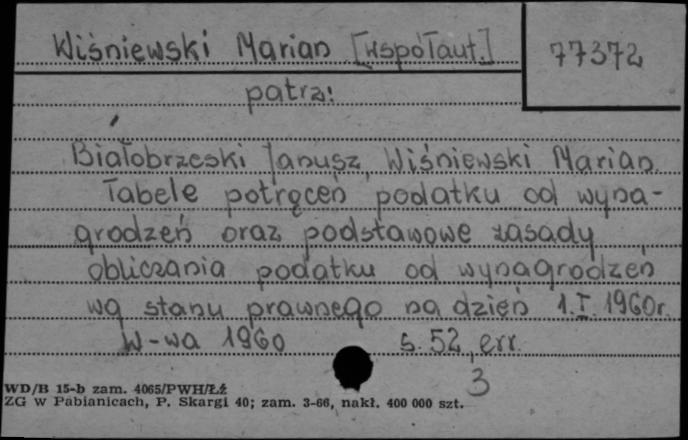 Wiśniewski Marian [współaut.]
77372
patrz:
Białobrzeski Janusz, Wiśniewski Marian
Tabele potrąceń podatku od wyna-
grodzeń oraz podstawowe zasady
obliczania podatku od wynagrodzeń
wg stanu prawnego na dzień 1.I.1960r.
W-wa 1960 s. 52, err.
3
WD/B 15-b zam. 4065/PWH/Łź
ZG w Pabianicach, P. Skargi 40; zam. 3-66, nakł. 400 000 szt.